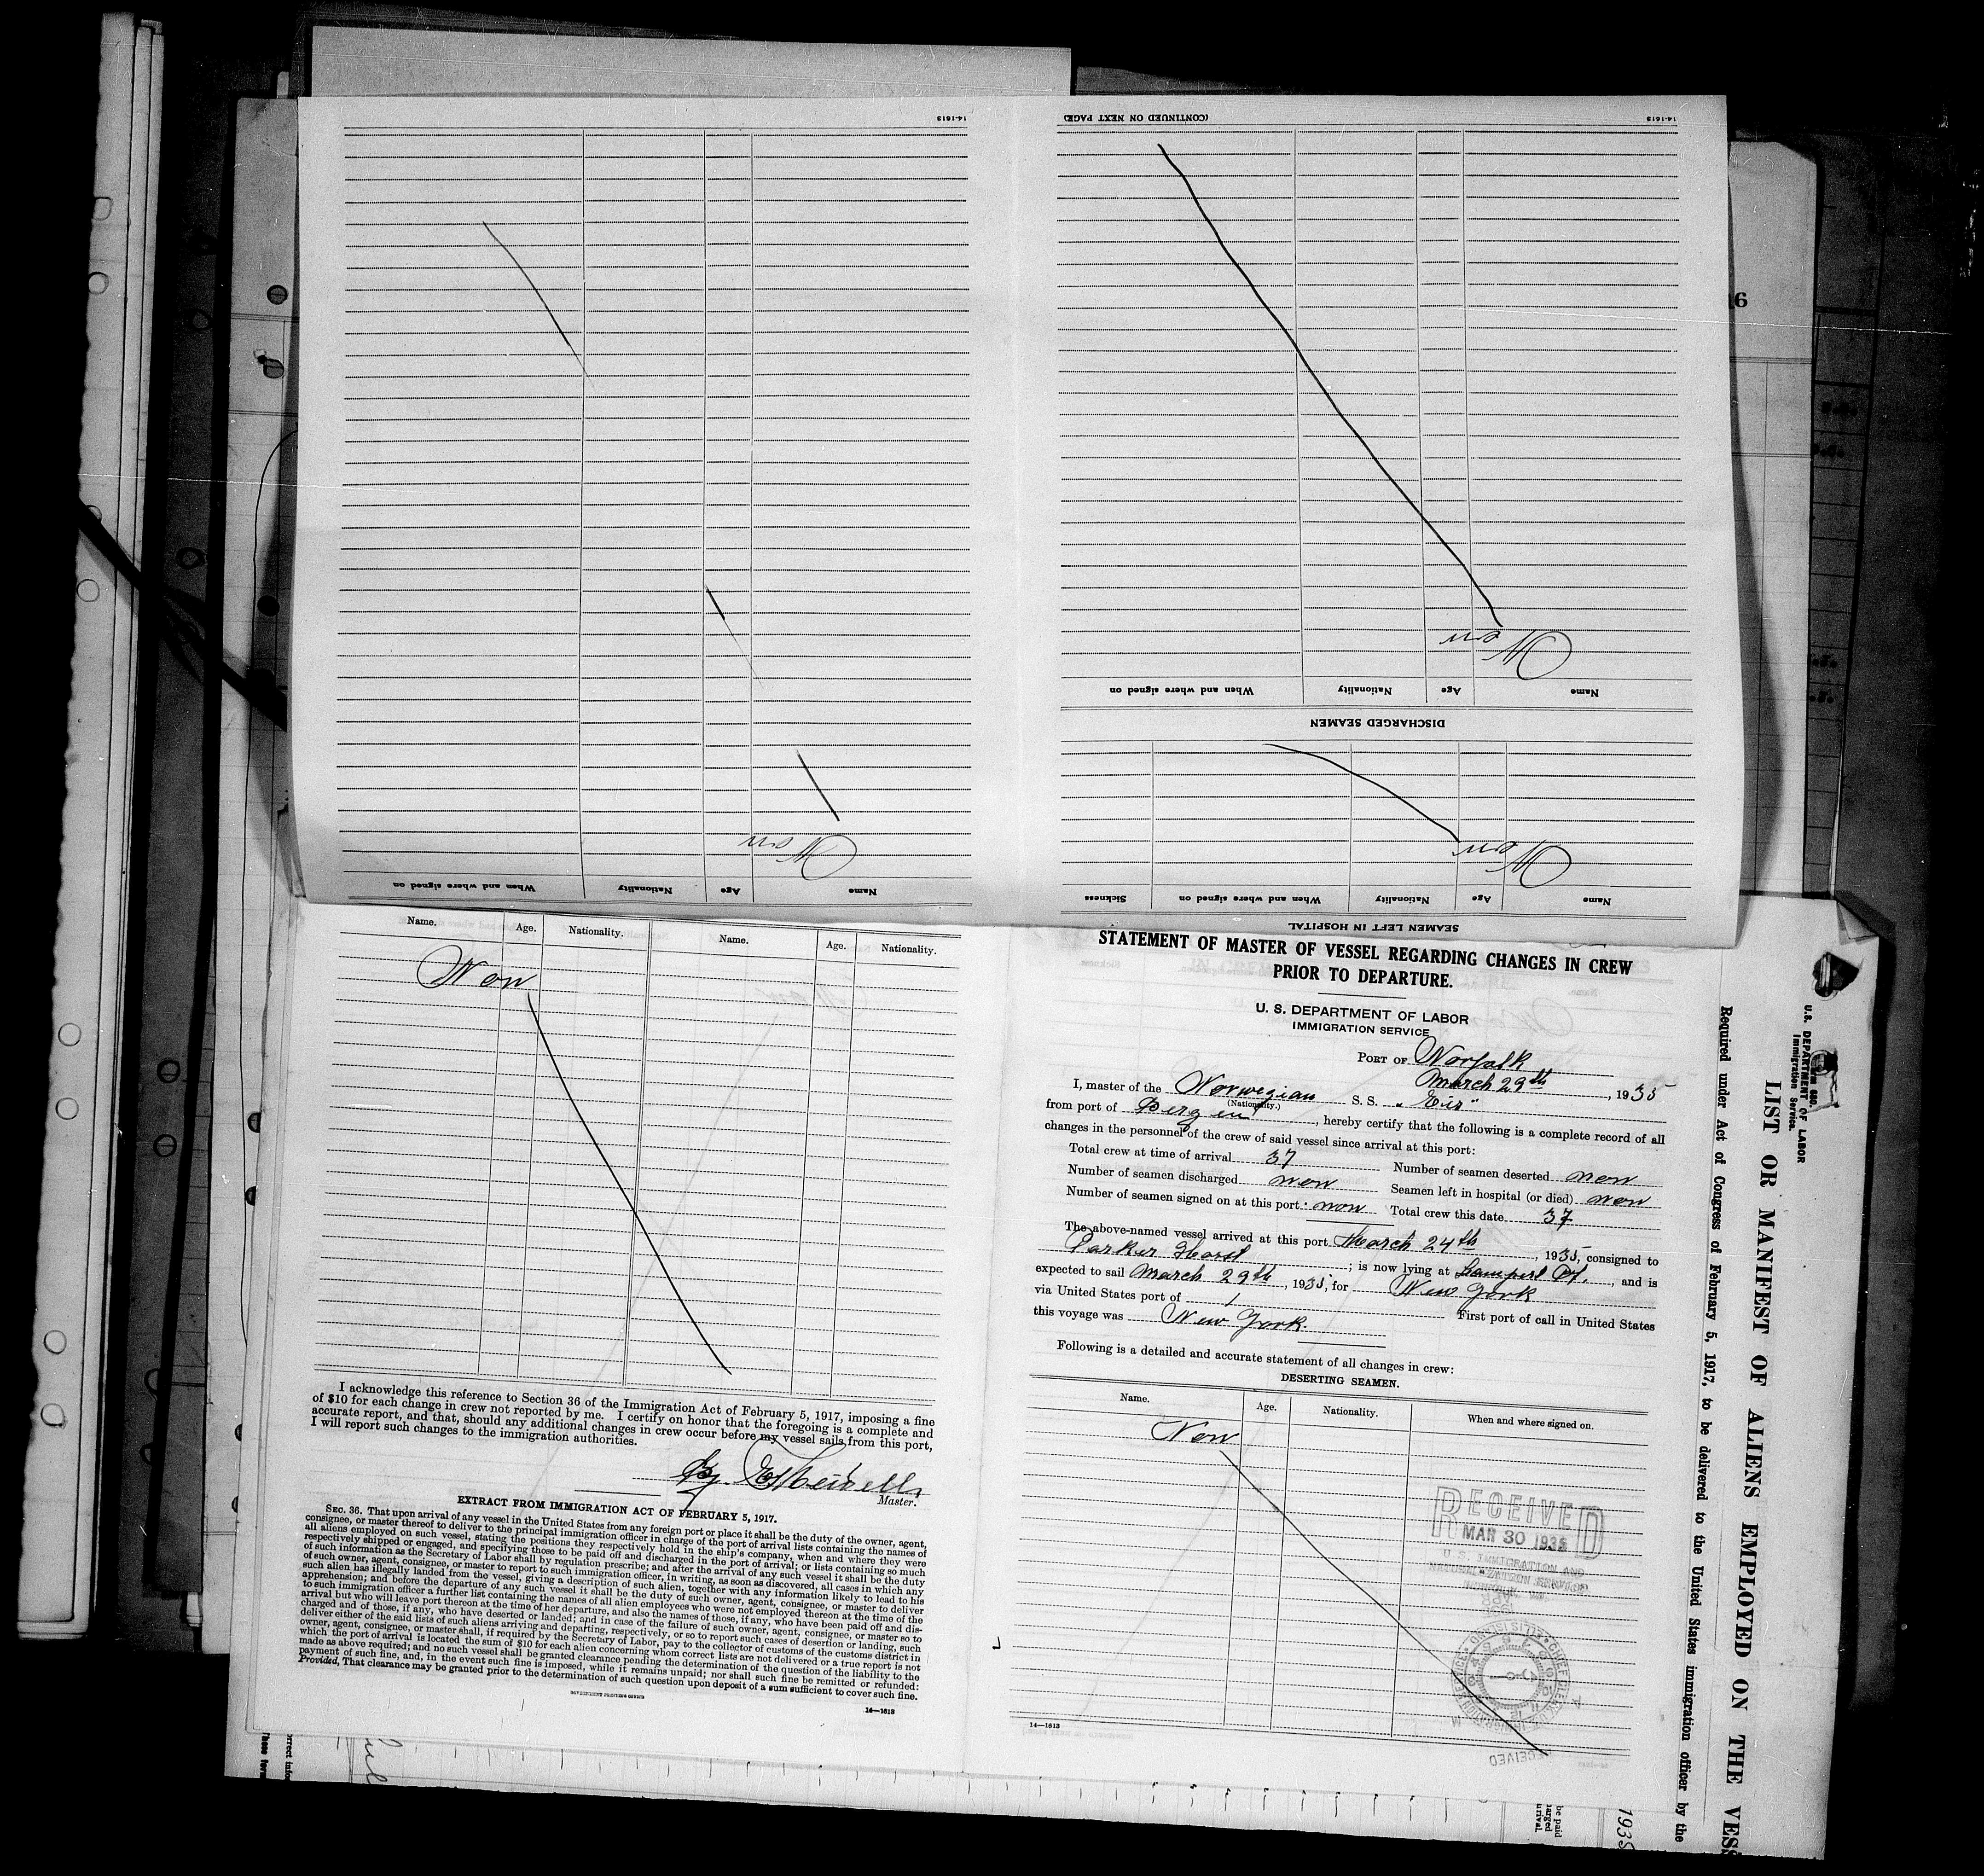 14-1613
When and where signed on Nationality Age Name
Non
(CONTINUED ON NEXT PAGE)
14-1613
SEAMEN LEFT IN HOSPITAL
Name Age Nationality When and where signed on Sickness
Non
DISCHARGED SEAMEN
Name Age Nationality When and where signed on
Non
6
Name. Age. Nationality. Name. Age. Nationality.
Non
I acknowledge this reference to Section 36 of the Immigration Act of February 5, 1917, imposing a fine
of $10 for each change in crew not reported by me. I certify on honor that the foregoing is a complete and
accurate report, and that, should any additional changes in crew occur before my vessel sails from this port,
I will report such changes to the immigration authorities.
Master.
EXTRACT FROM IMMIGRATION ACT OF FEBRUARY 5, 1917.
SEC. 36. That upon arrival of any vessel in the United States from any foreign port or place it shall be the duty of the owner, agent,
consignee, or master thereof to deliver to the principal immigration officer in charge of the port of arrival lists containing the names of
all aliens employed on such vessel, stating the positions they respectively hold in the ship's company, when and where they were
respectively shipped or engaged, and specifying those to be paid off and discharged in the port of arrival; or lists containing so much
of such information as the Secretary of Labor shall by regulation prescribe; and after the arrival of any such vessel it shall be the duty
of such owner, agent, consignee, or master to report to such immigration officer, in writing, as soon as discovered, all cases in which any
such alien has illegally landed from the vessel, giving a description of such alien, together with any information likely to lead to his
apprehension; and before the departure of any such vessel it shall be the duty of such owner, agent, consignee, or master to deliver
to such immigration officer a further list containing the names of all alien employees who were not employed thereon at the time of the
arrival but who will leave port thereon at the time of her departure, and also the names of those, if any, who have been paid off and dis-
charged and of those, if any, who have deserted or landed; and in case of the failure of such owner, agent, consignee, or master so to
deliver either of the said lists of such aliens arriving and departing, respectively, or so to report such cases of desertion or landing, such
owner, agent, consignee, or master shall, if required by the Secretary of Labor, pay to the collector of customs of the customs district in
which the port of arrival is located the sum of $10 for each alien concerning whom correct lists are not delivered or a true report is not
made as above required; and no such vessel shall be granted clearance pending the determination of the question of the liability to the
payment of such fine, and, in the event such fine is imposed, while it remains unpaid; nor shall such fine be remitted or refunded:
Provided, That clearance may be granted prior to the determination of such question upon deposit of a sum sufficient to cover such fine.
GOVERNMENT PRINTING OFFICE
14—1613
STATEMENT OF MASTER OF VESSEL REGARDING CHANGES IN CREW
PRIOR TO DEPARTURE.
U. S. DEPARTMENT OF LABOR
IMMIGRATION SERVICE
PORT OF Norfolk
March 29th, 1935
I, master of the Norwegian S. S. "Eir"
(Nationality.)
from port of Bergen, hereby certify that the following is a complete record of all
changes in the personnel of the crew of said vessel since arrival at this port:
Total crew at time of arrival 37 Number of seamen deserted non
Number of seamen discharged non Seamen left in hospital (or died) non
Number of seamen signed on at this port: non Total crew this date 37
The above-named vessel arrived at this port March 24th, 1935, consigned to
Parker ; is now lying at Pt., and is
expected to sail March 29th, 1935, for New York
via United States port of / First port of call in United States
this voyage was New York.
Following is a detailed and accurate statement of all changes in crew:
DESERTING SEAMEN.
Name. Age. Nationality. When and where signed on.
Non
RECEIVED
MAR 30 1935
U. S. IMMIGRATION AND
NATURALIZATION SERVICE
RECEIVED
14—1613
U. S. DEPARTMENT OF LABOR
Immigration Service.
LIST OR MANIFEST OF ALIENS EMPLOYED ON THE VESS
Required under Act of Congress of February 5, 1917, to be delivered to the United States immigration officer by the
be paid
1935